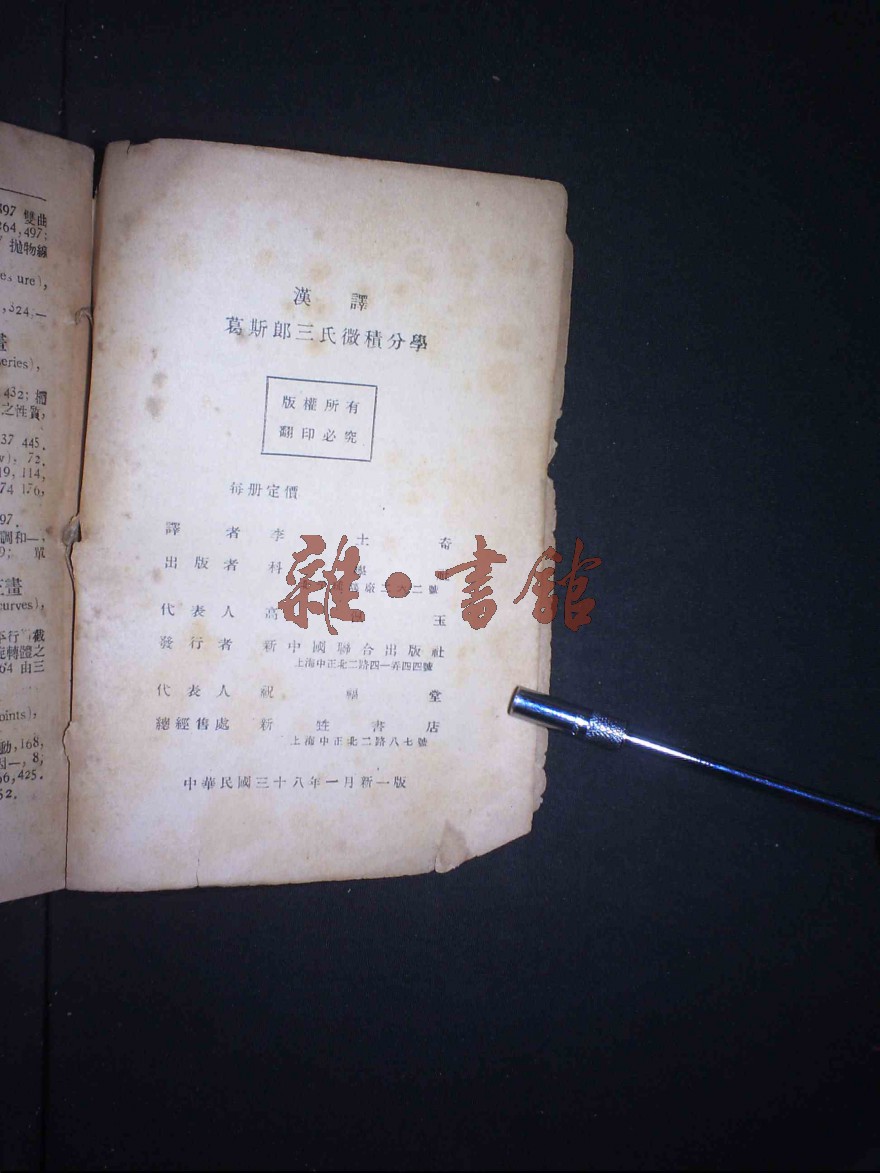 397 雙曲
264,497;
拋物線
ure),
,324;—
畫
eries),
432; 擺
之性質,
37 445.
v), 72.
19, 114,
74 176,
97.
調和—,
9; 單
畫
curves),
截
旋轉體之
64 由三
oints),
動,168,
因—, 8,
66,425.
52.
漢 譯
葛斯郎三氏微積分學
版權所有
翻印必究
每册定價
譯者 李 士 奇
出版者 科 學
廠二 二號
代表人 高 玉
發行者 新中國聯合出版社
上海中正北二路四一弄四四號
代表人 祝 福 堂
總經售處 新 甡 書 店
上海中正北二路八七號
中華民國三十八年一月新一版
雜·書館